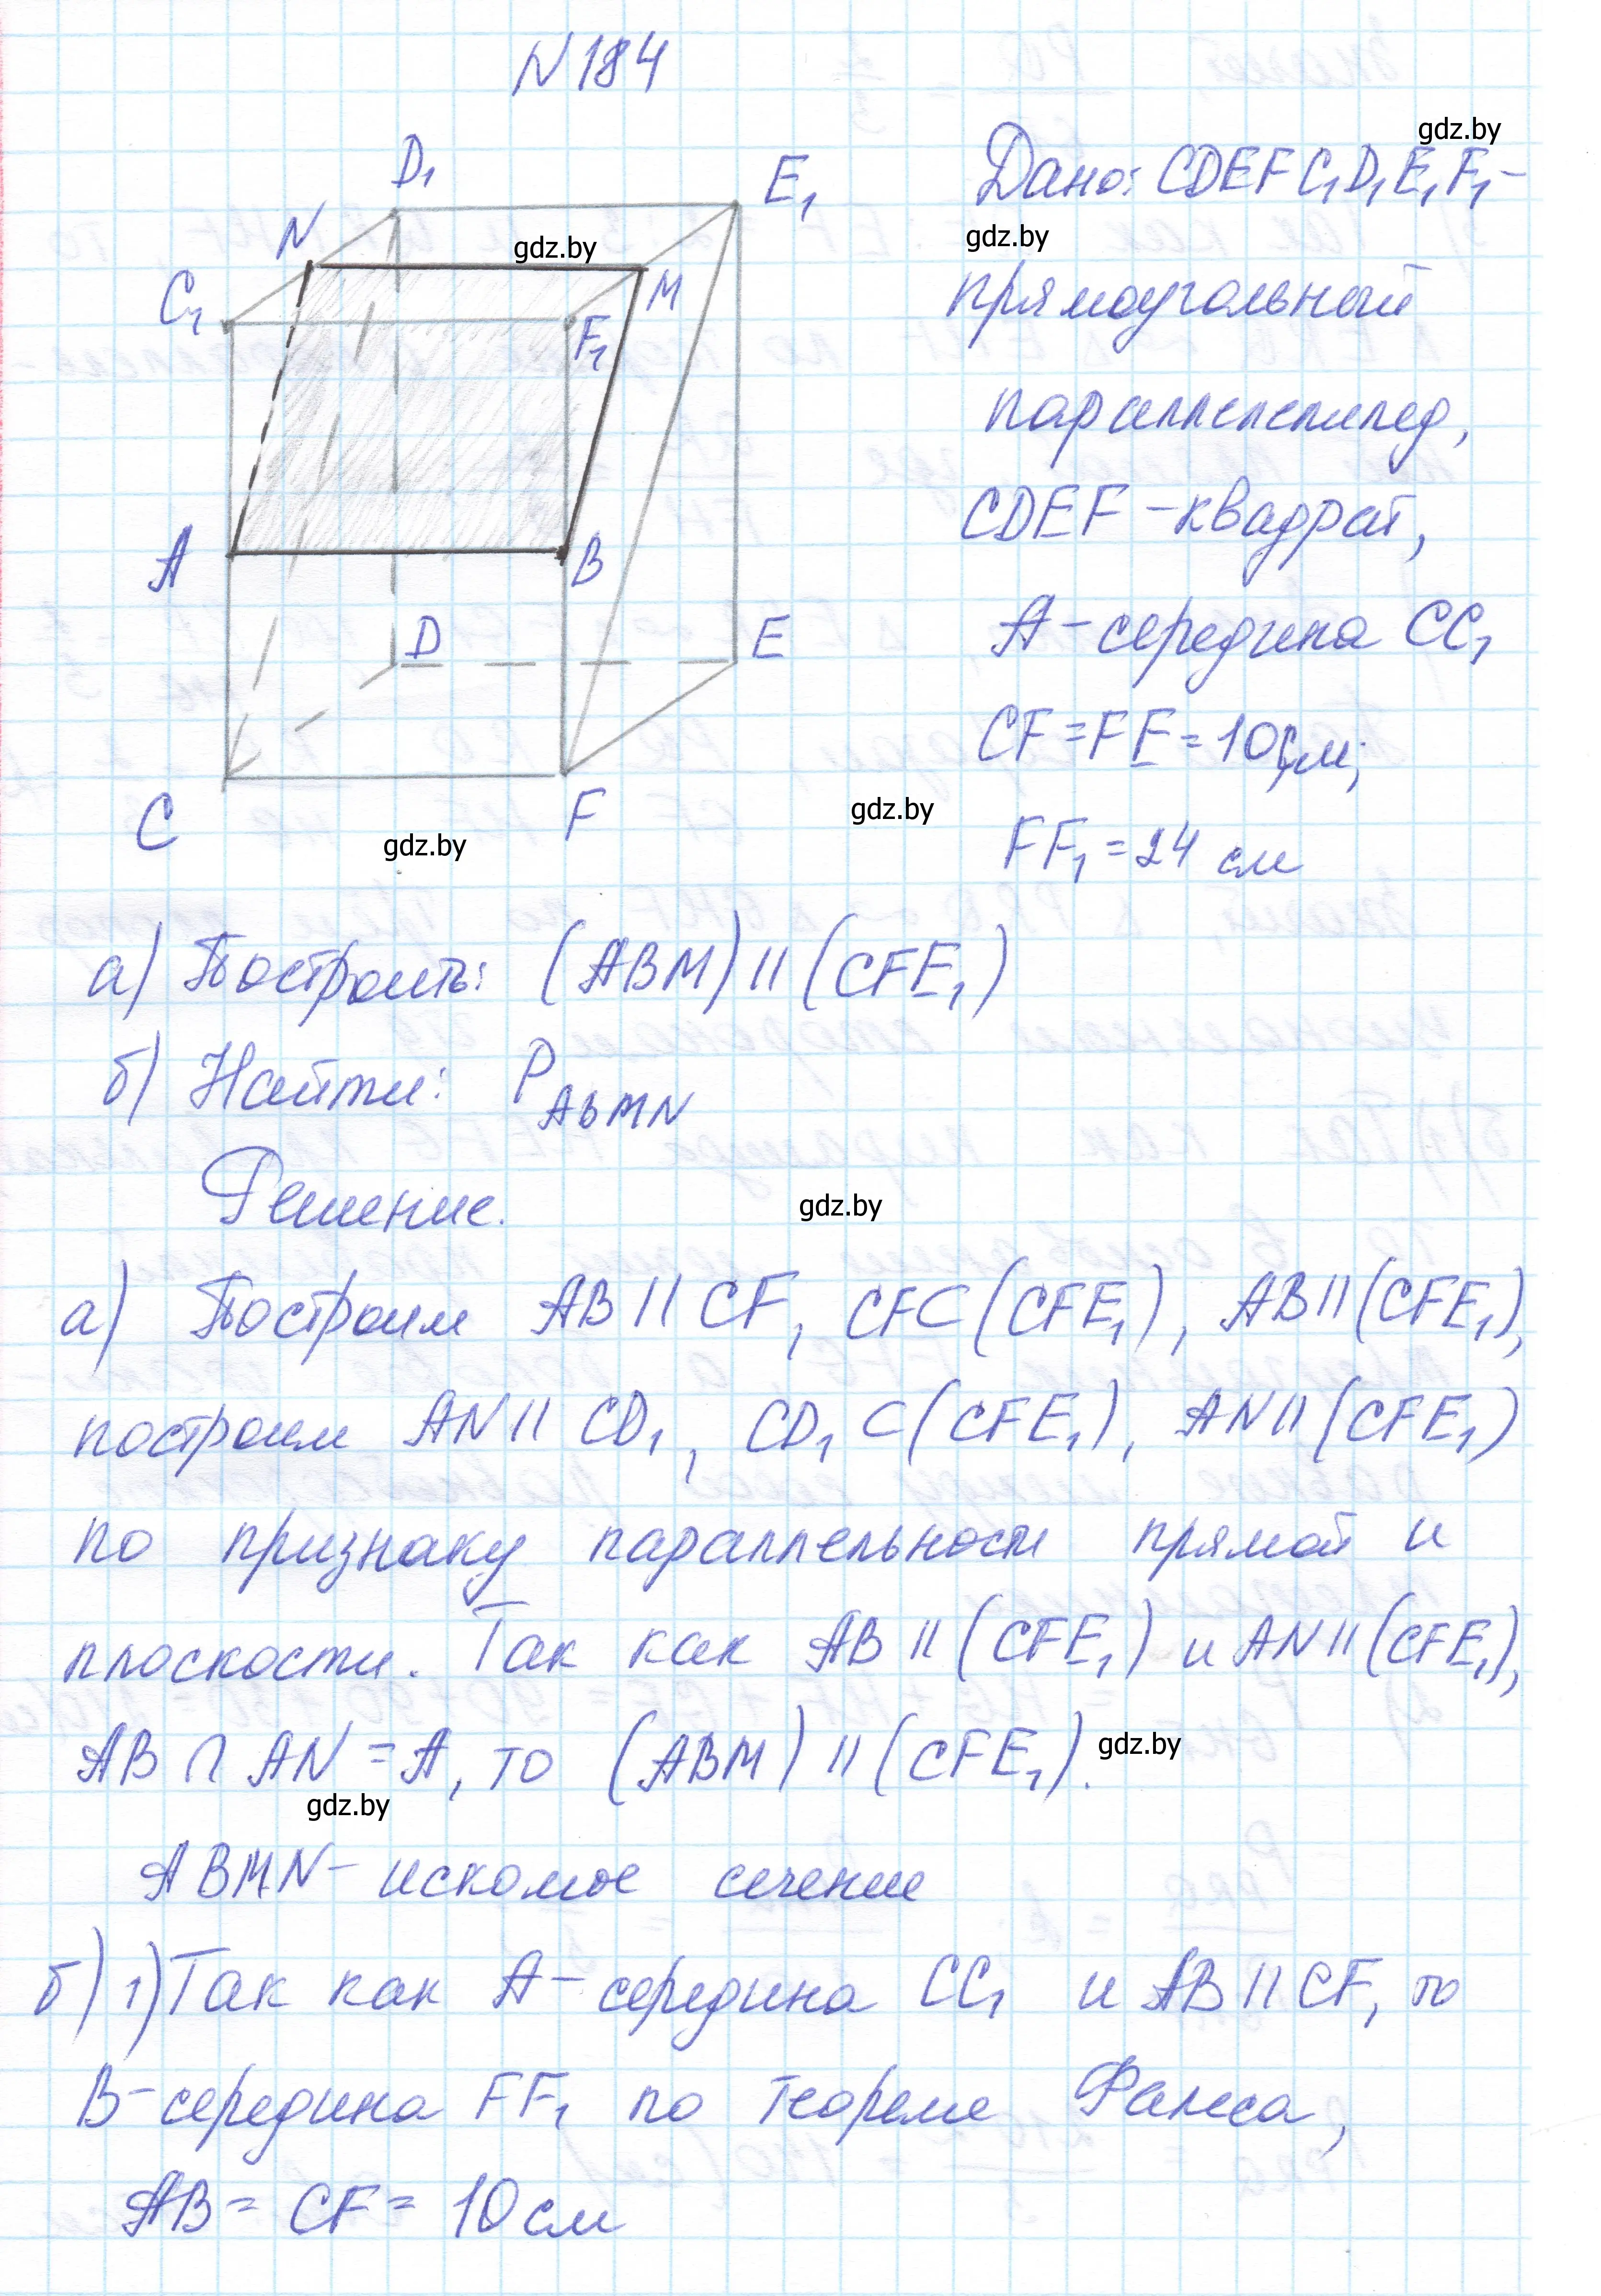 N 184
gdz.by
D₁
E₁
Дано: CDEFC₁D₁E₁F₁ –
N
gdz.by
gdz.by
C₁
M
прямоугольный
F₁
параллелепипед,
CDEF – квадрат,
A
B
D
E
A – середина CC₁
CF = FE = 10 см;
C
F
gdz.by
gdz.by
FF₁ = 24 см
а) Построить: (ABM) || (CFE₁)
б) Найти: P ABMN
Решение.
gdz.by
а) Построим AB || CF, CF⊂(CFE₁), AB||(CFE₁),
построим AN || CD₁, CD₁ ⊂ (CFE₁), AN||(CFE₁)
по признаку параллельности прямой и
плоскости. Так как AB || (CFE₁) и AN||(CFE₁),
AB ∩ AN = A, то (ABM) || (CFE₁).
gdz.by
gdz.by
ABMN – искомое сечение
б) 1) Так как A – середина CC₁ и AB || CF, то
B – середина FF₁ по теореме Фалеса,
AB = CF = 10 см